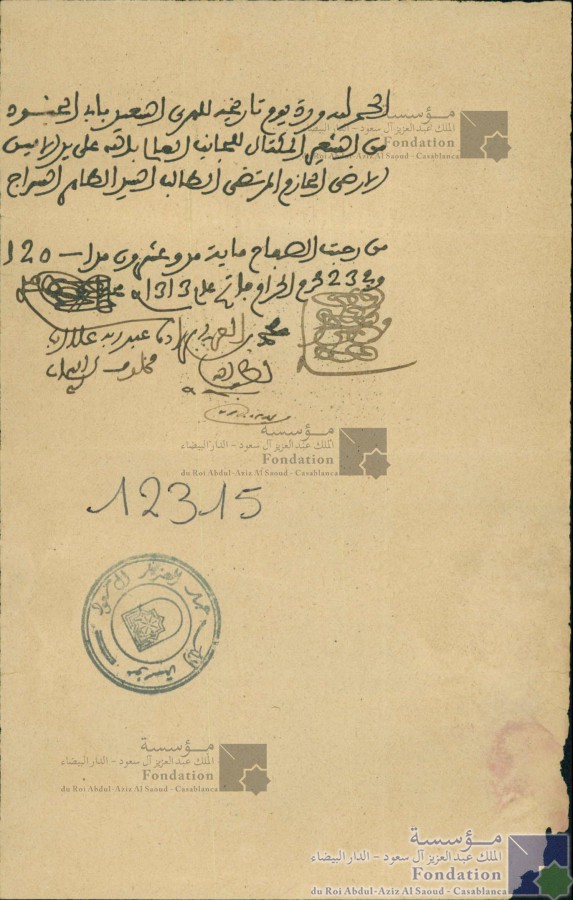 الحمد لله ورد يوم تاريخه للمرسى السعيد باب الجنوة
من الشعير المكتال للجانب العالي بالله على يد الأمين
الأرضى الحازم المرتضى الطالب السيد الطاهر السراج
من رحبة الصباح ماية مد وعشرون مدا — 120
وفي 23 محرم الحرام فاتح عام 1313
محمد المهدي
الله
عبد ربه علال
مؤسسة
الملك عبد العزيز آل سعود - الدار البيضاء
Fondation
du Roi Abdul-Aziz Al Saoud - Casablanca
مؤسسة
الملك عبد العزيز آل سعود - الدار البيضاء
Fondation
du Roi Abdul-Aziz Al Saoud - Casablanca
12315
مؤسسة الملك عبد العزيز آل سعود
مؤسسة
الملك عبد العزيز آل سعود - الدار البيضاء
Fondation
du Roi Abdul-Aziz Al Saoud - Casablanca
مؤسسة
الملك عبد العزيز آل سعود - الدار البيضاء
Fondation
du Roi Abdul-Aziz Al Saoud - Casablanca